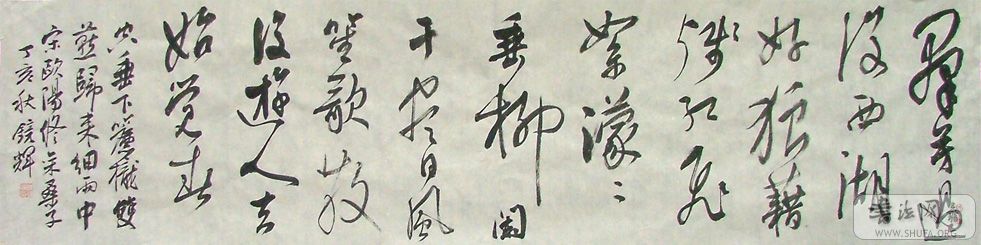 羣芳過
後西湖
好狼藉
残红飛
絮濛〻
垂柳阑
干尽日風
笙歌散
後遊人去
始觉春
空垂下簾櫳雙
燕歸来細雨中
宋歐陽修采桑子
丁亥秋鏡輝
書法网
WWW.SHUFA.ORG